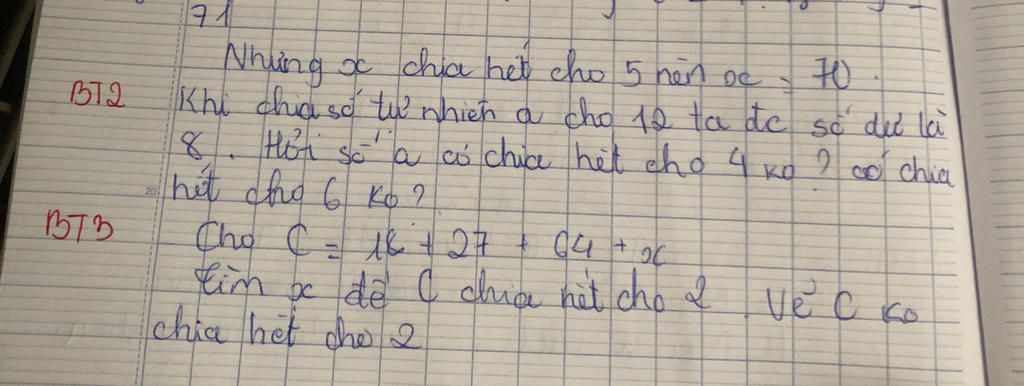 71
Nhưng x chia hết cho 5 nên x = 70.
BT2 Khi chia số tự nhiên a cho 12 ta đc số dư là
8. Hỏi số a có chia hết cho 4 ko? có chia
hết cho 6 ko?
BT3 Cho C = 16 + 27 + 64 + x
tìm x để C chia hết cho 2 Về C ko
chia hết cho 2